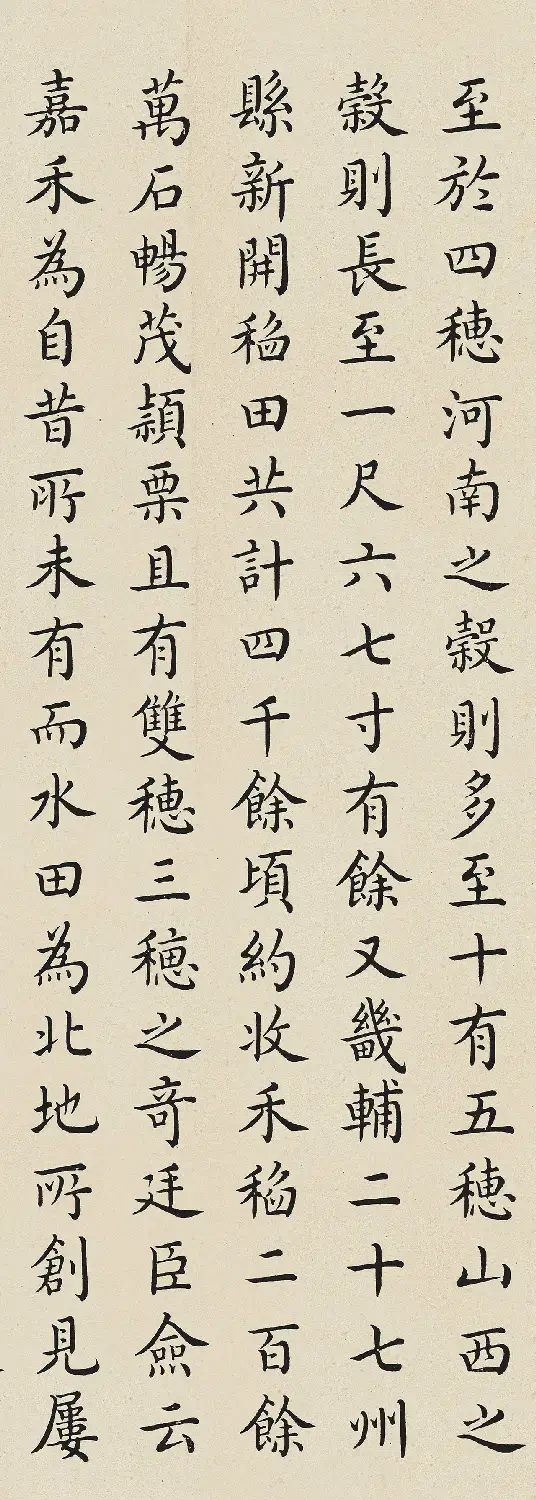 至於四穂河南之榖則多至十有五穂山西之
榖則長至一尺六七寸有餘又畿輔二十七州
縣新開稻田共計四千餘頃約收禾稻二百餘
萬石暢茂穎栗且有雙穂三穂之奇廷臣僉云
嘉禾為自昔所未有而水田為北地所創見屢